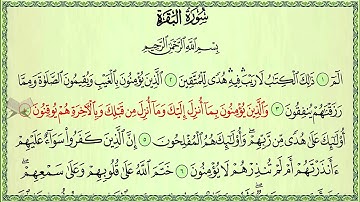 سُورَةُ البَقَرَةِ
بِسْمِ اللَّهِ الرَّحْمَٰنِ الرَّحِيمِ
الٓمٓ ۝١ ذَٰلِكَ الْكِتَٰبُ لَا رَيْبَ ۛ فِيهِ ۛ هُدًى لِّلْمُتَّقِينَ ۝٢ الَّذِينَ يُؤْمِنُونَ بِالْغَيْبِ وَيُقِيمُونَ الصَّلَوٰةَ وَمِمَّا
رَزَقْنَٰهُمْ يُنفِقُونَ ۝٣ وَالَّذِينَ يُؤْمِنُونَ بِمَآ أُنزِلَ إِلَيْكَ وَمَآ أُنزِلَ مِن قَبْلِكَ وَبِالْءَاخِرَةِ هُمْ يُوقِنُونَ ۝٤
أُوْلَٰٓئِكَ عَلَىٰ هُدًى مِّن رَّبِّهِمْ ۖ وَأُوْلَٰٓئِكَ هُمُ الْمُفْلِحُونَ ۝٥ إِنَّ الَّذِينَ كَفَرُوا۟ سَوَآءٌ عَلَيْهِمْ
ءَأَنذَرْتَهُمْ أَمْ لَمْ تُنذِرْهُمْ لَا يُؤْمِنُونَ ۝٦ خَتَمَ اللَّهُ عَلَىٰ قُلُوبِهِمْ وَعَلَىٰ سَمْعِهِمْ ۖ